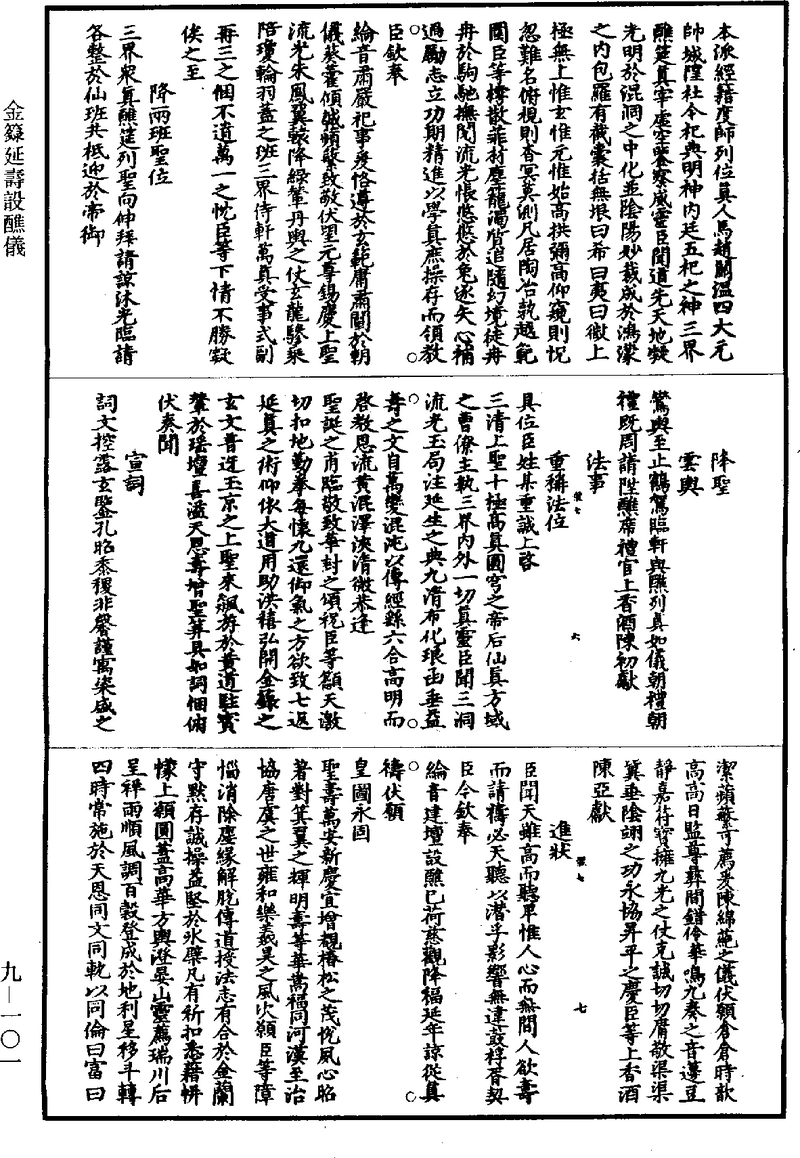 金籙延壽設醮儀
本派經籍度師列位真人馬趙關溫四大元
帥城隍社令祀典明神內廷五祀之神三界
醮筵真宰虛空鑒察威靈臣聞道先天地凝
光明於混洞之中化並陰陽妙裁成於鴻濛
之內包羅有截囊括無垠曰希曰夷曰微上
極無上惟玄惟元惟始高拱彌高仰窺則怳
忽難名俯視則杳冥莫測凡居陶冶孰越範
圍臣等樗散菲材塵籠濁質追隨幻境徒冉
冉於駒馳撫閱流光悵悠悠於兔逐矢心補
過勵志立功期精進以學真庶操存而領教
臣欽奉
綸音肅嚴祀事爰恪遵於玄範庸肅闡於朝
儀葵藿傾誠蘋蘩致敬伏望元尊錫慶上聖
流光朱鳳翼轅降綠輦丹輿之仗玄龍驂乘
陪瓊輪羽蓋之班三界侍軒萬真受事式副
再三之悃不遺萬一之忱臣等下情不勝凝
俟之至
降兩班聖位
三界衆真醮筵列聖向伸拜請諒沐光臨請
各整於仙班共祗迎於帝御
降聖
雲輿
鸞輿至止鶴駕臨軒與醮列真如儀朝禮朝
禮既周請陞醮席禮官上香酒陳初獻
法事
重稱法位
具位臣姓某重誠上啓
三清上聖十極高真圓穹之帝后仙真方域
之曹僚主執三界內外一切真靈臣聞三洞
流光玉局注延生之典九清布化琅函垂益
壽之文自萬變混沌以傳經繇六合高明而
啓教恩流黃混澤浹清微恭逢
聖誕之甫臨敬致華封之頌祝臣等籲天激
切扣地勤拳每懷九還御氣之方欲致七返
延真之術仰依大道用助洪禧弘開金籙之
玄文普迓玉京之上聖來飆斿於黃道駐寶
輦於瑤壇喜溢天恩壽增聖筭具如詞悃俯
伏奏聞
宣詞
詞文控露玄鑒孔昭黍稷非馨謹寓粢盛之
潔蘋蘩可薦爰陳綿蕝之儀伏願倉倉時歆
高高日監尊彝間錯伶華鳴九奏之音籩豆
靜嘉符寶擁九光之仗克誠切切庸敬渠渠
冀垂陰翊之功永協昇平之慶臣等上香酒
陳亞獻
進狀
臣聞天雖高而聽卑惟人心而無間人欲壽
而請禱必天聽以潛孚影響無違鼓桴胥契
臣今欽奉
綸音建壇設醮已荷慈觀降福延年諒從真
禱伏願
皇圖永固
聖壽萬安新慶宜增覩椿松之茂悅風心昭
著對箕翼之輝明壽等華嵩福同河漢至治
協唐虞之世雍和樂羲昊之風次願臣等障
惱消除塵緣解脫傳道授法志有合於金蘭
守默存誠操益堅於氷蘗凡有祈扣悉藉帡
幪上願圓蓋高華方輿澄晏山靈薦瑞川后
呈祥雨順風調百穀登成於地利星移斗轉
四時常施於天恩同文同軌以同倫曰富曰
九—一〇一